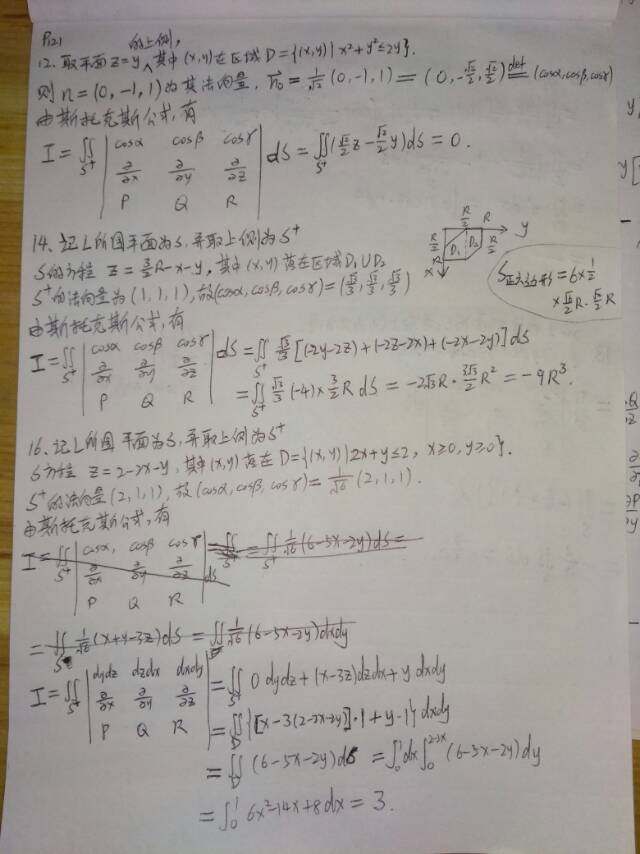 P121
12. 取平面 z=y 的上侧, 其中 (x,y) 在区域 D={(x,y)|x²+y²≤2y}.
则 n=(0,-1,1) 为其法向量, n₀=1/√2(0,-1,1)=(0,-√2/2,√2/2) def (cosα,cosβ,cosγ)
由斯托克斯公式, 有
I=∬_{S⁺} | cosα cosβ cosγ | dS=∬_{S⁺}(√2/2 z-√2/2 y)dS=0.
∂/∂x ∂/∂y ∂/∂z
P Q R
14. 记L所围平面为S, 并取上侧为S⁺
S的方程 z=3/2R-x-y, 其中 (x,y) 落在区域D₁∪D₂
S⁺的法向量为 (1,1,1), 故(cosα,cosβ,cosγ)=(√3/3,√3/3,√3/3)
R/2 R y
R/2 D₁ D₂ R/2
R x
S正六边形=6×1/2
×√2/2R·√2/2R
由斯托克斯公式, 有
I=∬_{S⁺} | cosα cosβ cosγ | dS=∬_{S⁺} √3/3[(-2y-2z)+(-2z-2x)+(-2x-2y)]dS
∂/∂x ∂/∂y ∂/∂z
P Q R
=∬_{S⁺} √3/3(-4)×3/2R dS=-2√3R·3√3/2R²=-9R³.
16. 记L所围平面为S, 并取上侧为S⁺
S方程 z=2-2x-y, 其中(x,y)落在D={(x,y)|2x+y≤2, x≥0, y≥0}.
S⁺的法向量(2,1,1), 故(cosα,cosβ,cosγ)=1/√6(2,1,1).
由斯托克斯公式, 有
I=∬_{S⁺} | cosα, cosβ cosγ | dS =∬_{S⁺} 1/√6(6-5x-2y)dS=
∂/∂x ∂/∂y ∂/∂z
P Q R
=∬_S 1/√6(x+y-3z)dS=∬_D 1/√6(6-5x-2y)dxdy
I=∬_{S⁺} | dydz dzdx dxdy | =∬_{S⁺} 0dydz+(x-3z)dzdx+ydxdy
∂/∂x ∂/∂y ∂/∂z
P Q R
=∬_D{[x-3(2-2x-y)]·1+y·1}dxdy
=∬_D(6-5x-2y)dS =∫₀¹dx∫₀^{2-2x}(6-5x-2y)dy
=∫₀¹6x²-14x+8dx=3.